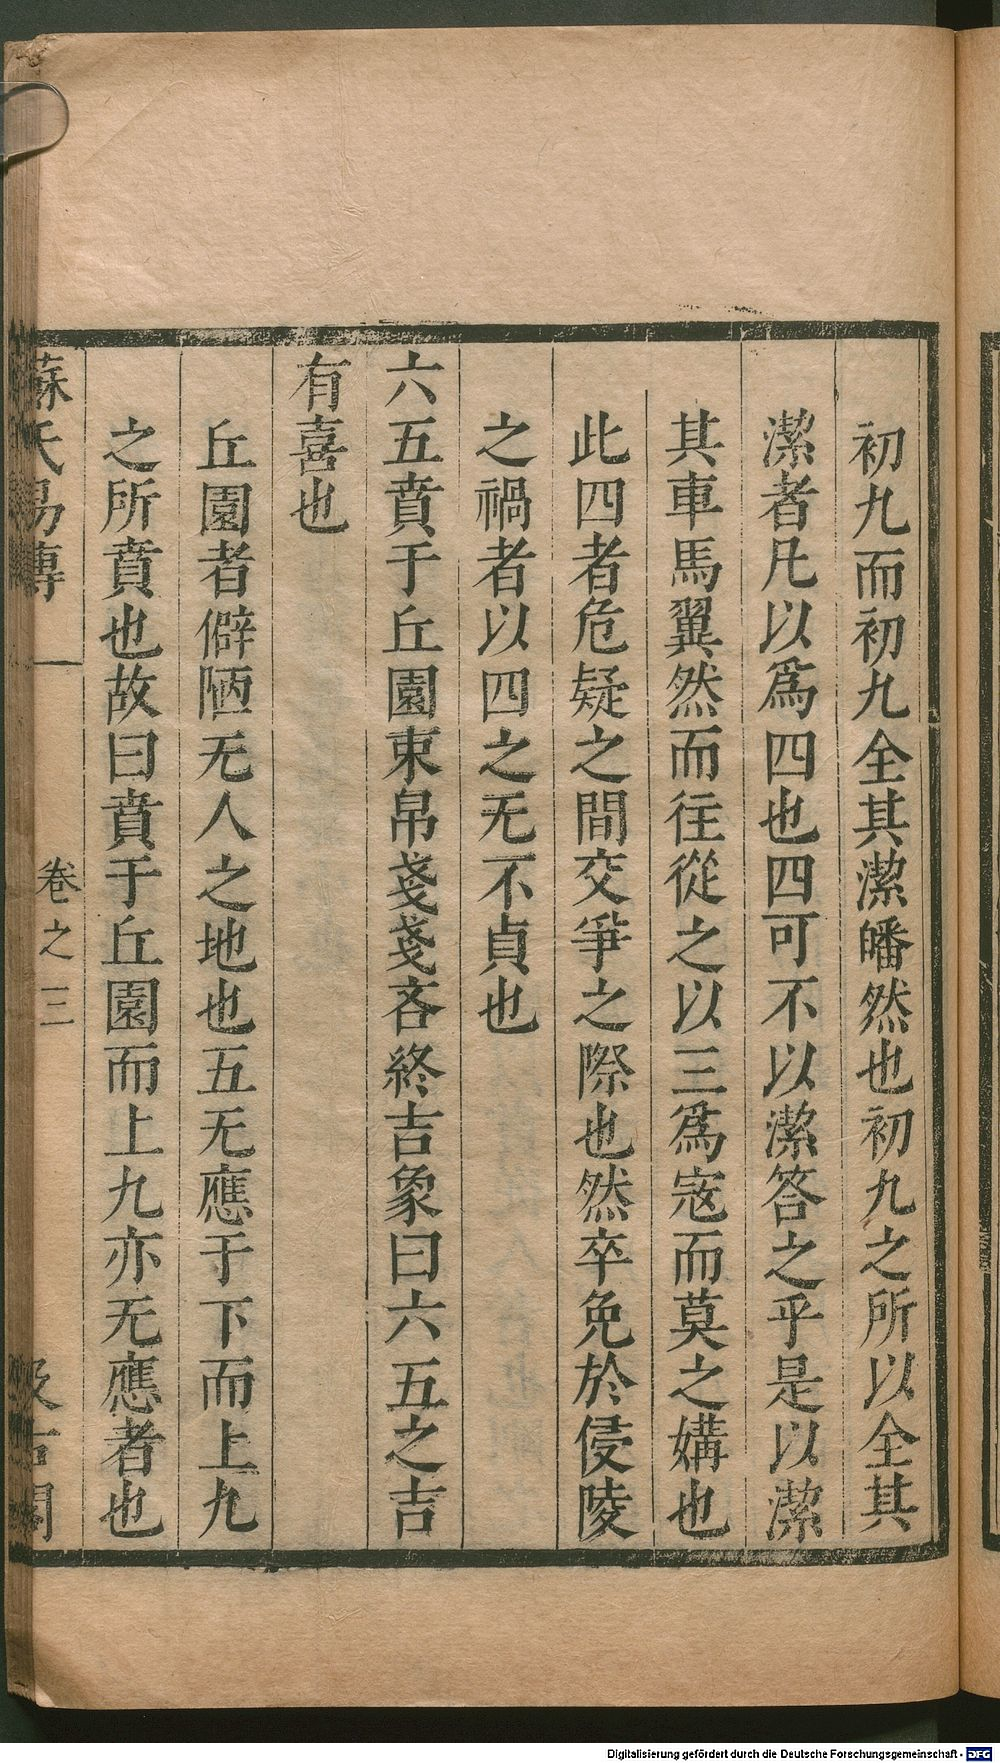 初九而初九全其潔皤然也初九之所以全其
潔者凡以爲四也四可不以潔答之乎是以潔
其車馬翼然而往從之以三爲宼而莫之媾也
此四者危疑之間交爭之際也然卒免於侵陵
之禍者以四之无不貞也
六五賁于丘園束帛戔戔吝終吉象曰六五之吉
有喜也
丘園者僻陋无人之地也五无應于下而上九
之所賁也故曰賁于丘園而上九亦无應者也
蘇氏易傳
卷之三
汲古閣
Digitalisierung gefördert durch die Deutsche Forschungsgemeinschaft - DFG